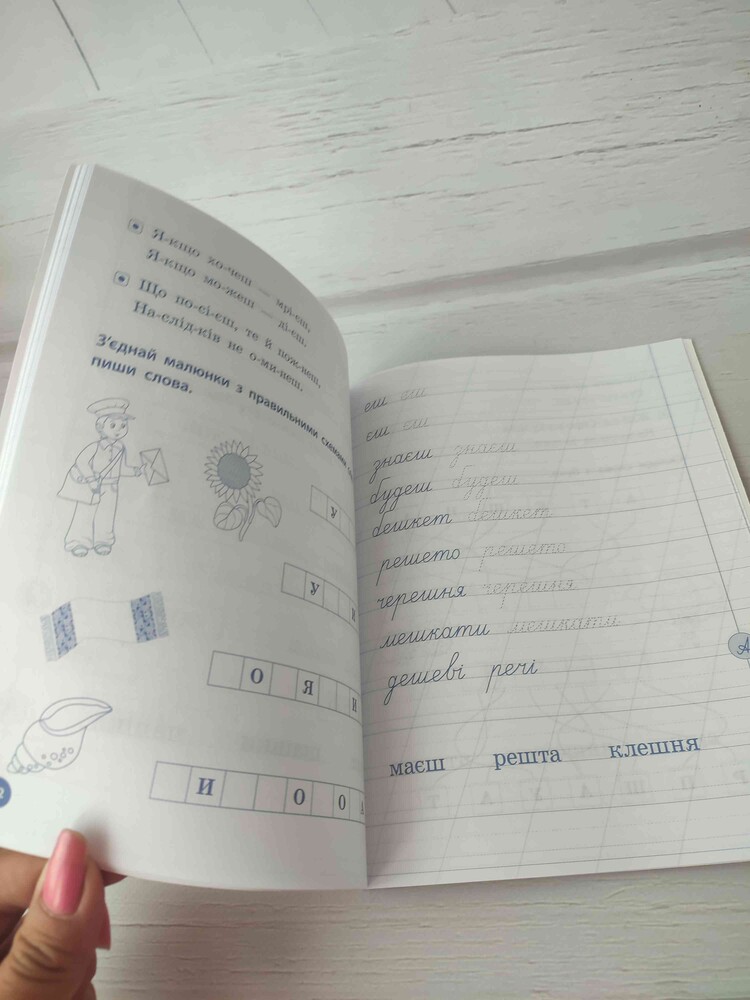 Я-кщо хо-чеш — мрі-єш,
Я-кщо мо-жеш — ді-єш.
Що по-сі-єш, те й пож-неш,
На-слід-ків не о-ми-неш.
З'єднай малюнки з правильними схемами
пиши слова.
У
У И
О Я И
И О О
еш еш
єш єш
знаєш знаєш
будеш будеш
бешкет бешкет
решето решето
черешня черешня
мешкати мешкати
дешеві речі
маєш решта клешня